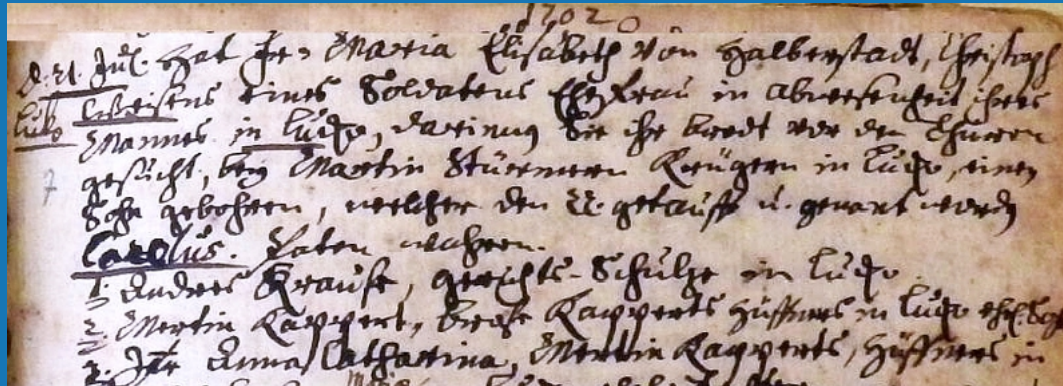 1702
d. 21. Jul. hat Fr. Maria Elisabeth von Halberstadt, Christoph
Weisens eines Soldatens Ehefrau in abwesenheit ihres
Mannes in Ludo, darinnen Sie ihr brodt vor den Thüren
gesucht, bey Martin Stürmern Krügern in Ludo, einen
7
Sohn gebohren, welcher den 22. getaufft u. genant worden
Carolus. Paten wahren.
1. Andres Krause, gerichts-Schultze in Ludo
2. Mertin Kappert, Kapperts Hüffners in Ludo ehel. Sohn
3. Jfr. Anna Catharina, Mertin Kapperts, Hüffners in